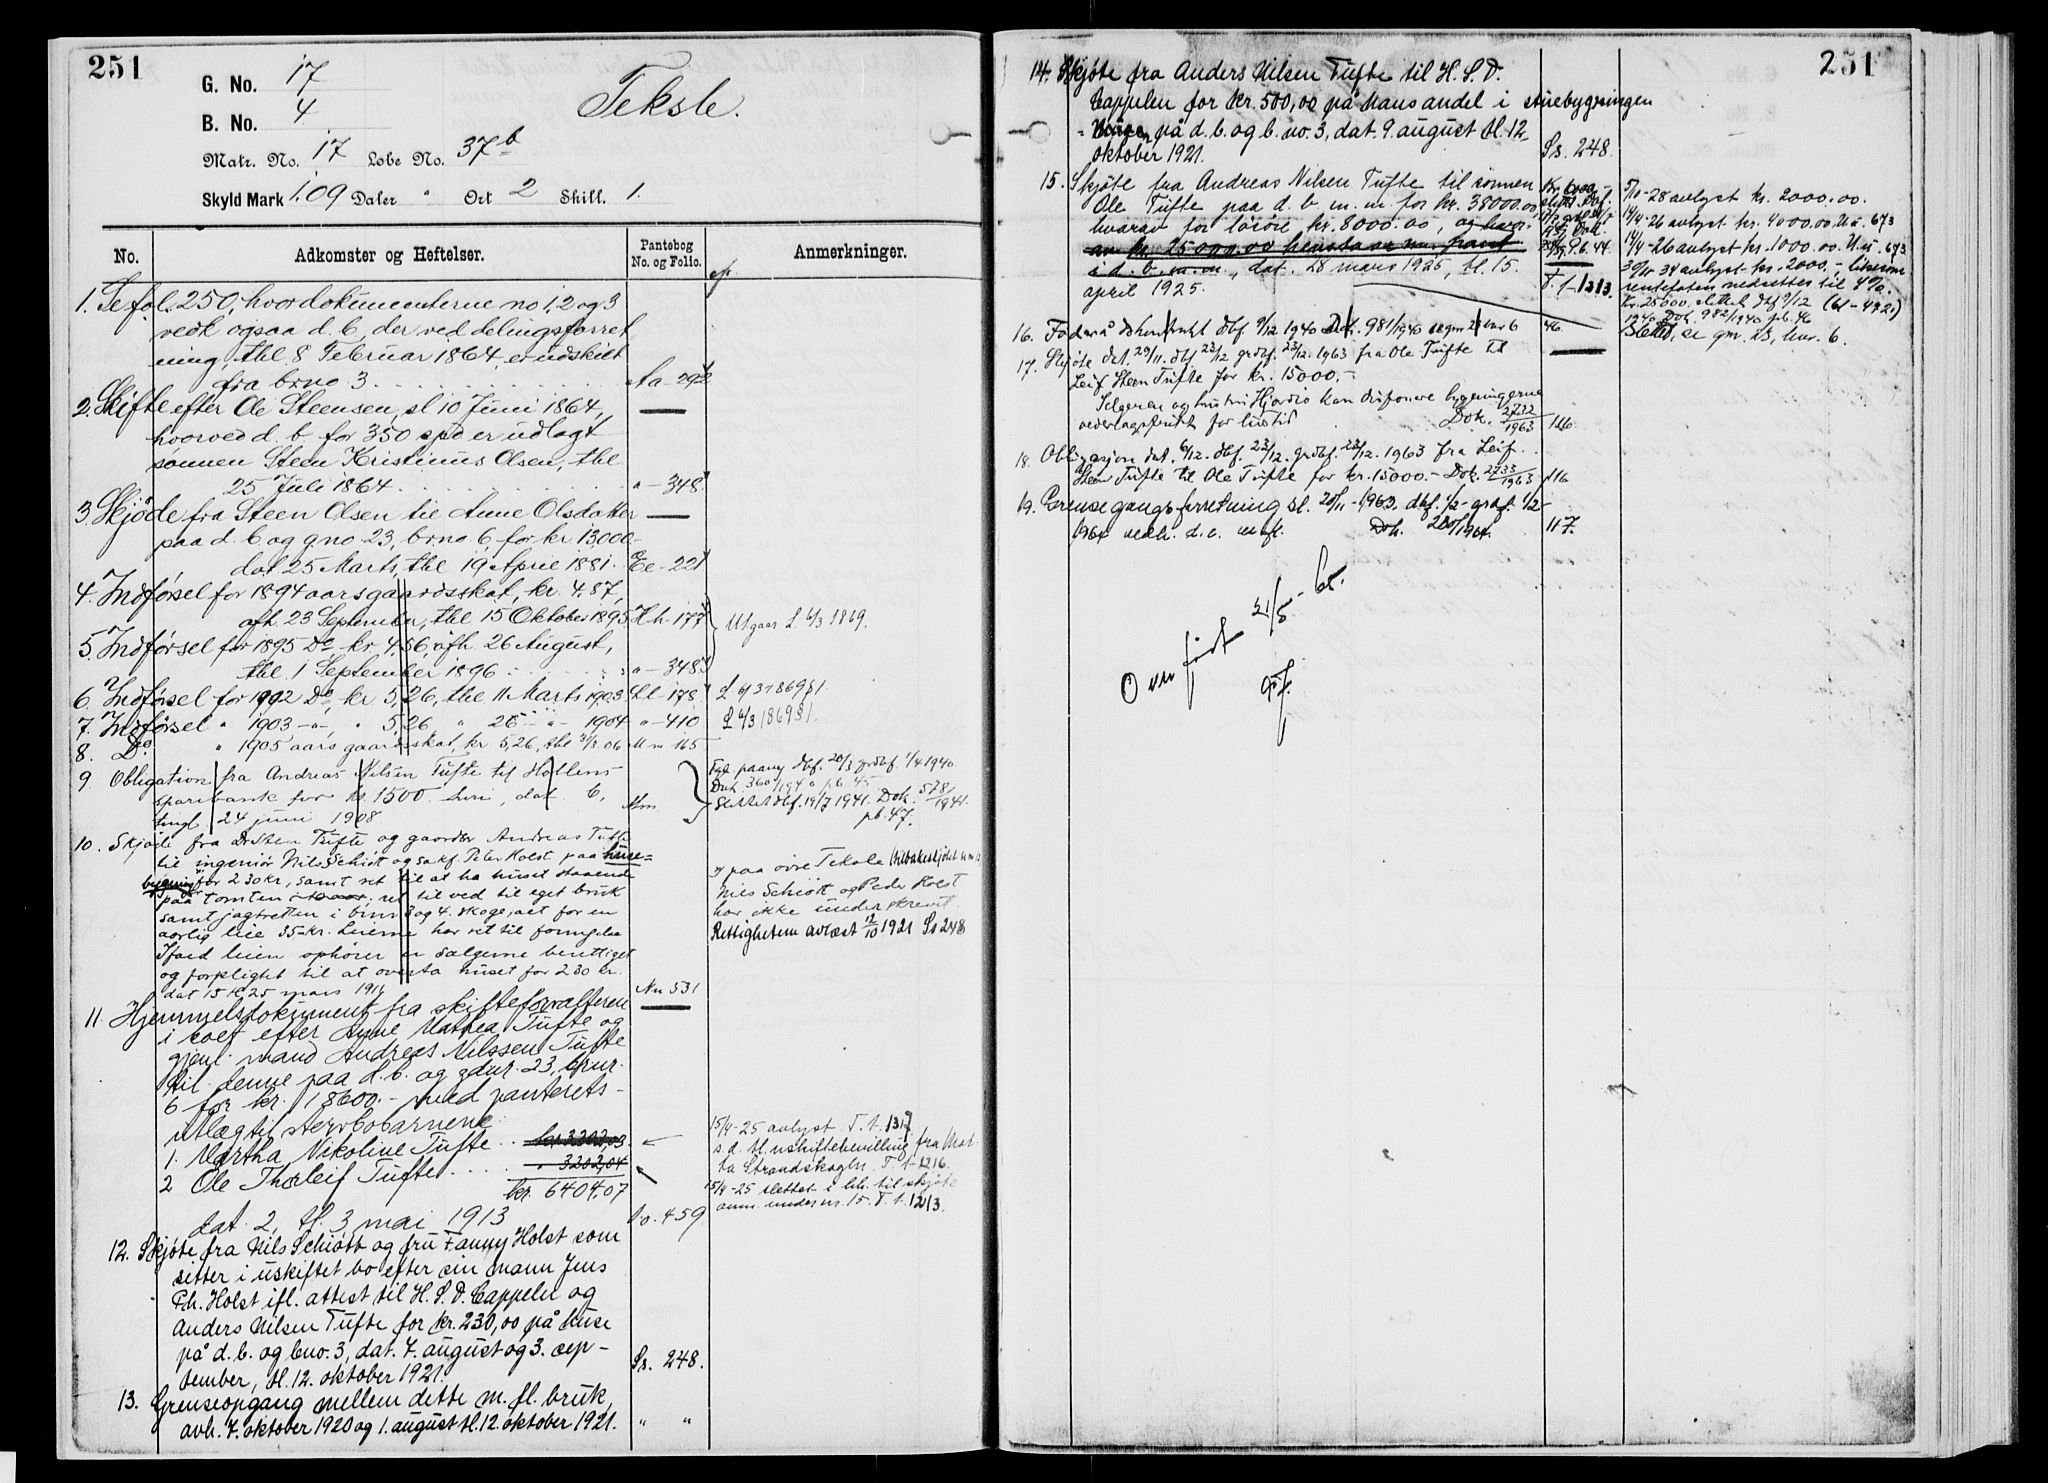 251
G. No. 17
B. No. 4
Teksle.
Matr. No. 17 Løbe No. 37b
Skyld Mark 1.09 Daler " Ort 2 Skill. 1.
No.
Adkomster og Heftelser.
Pantebog
No. og Folio.
Anmerkninger.
1. Se fol. 250, hvor dokumenterne no 1, 2 og 3
vedk ogsaa d. b, der ved delingsforret
ning, thl 8 Februar 1864, er udskilt
fra brno 3 Aa-292
2. Skifte efter Ole Steensen, sl 10 Juni 1864,
hvorved d. b. for 350 spd er udlagt
sønnen Steen Kristinus Olsen, thl
25 Juli 1864 "-348
3. Skjøde fra Steen Olsen til Anne Olsdatter
paa d. b og gno 23, brno 6, for kr 13,000.-
dat 25 Marts, thl 19 April 1881. Ee-221
4. Indførsel for 1894 aarsgaardsskat, kr. 4.87,
afh. 23 September, thl 15 Oktober 1895 Hh-177
Utgaar L. 6/3 1869.
5. Indførsel for 1895 Do, kr. 4,56, afh. 26 August,
thl. 1 September 1896 "-348
6. Indførsel for 1902 Do, kr 5,26, thl 11 Marts 1903 Ll-178 L 6/3 1869 §1.
7. Indførsel " 1903 -"- " 5,26 " 26 -"- 1904 "-410 L 6/3 1869 §1.
8. Do " 1905 aars gaardsskat, kr 5,26, thl 31/3 06 Mm 165
9 Obligation fra Andreas Nilsen Tufte til Hollens
sparebank for kr. 1500. dat. 6,
tingl. 24 juni 1908 Mm
Tgl. paany dbf. 20/3 grdbf. 1/4 1940
Dok 360/1940 pb. 45.
Slettet dbf. 19/7 1941. Dok. 578/1941.
pb. 47.
10. Skjøde fra Dr Sten Tufte og gaardbr Andreas Tufte
til ingeniør Nils Schiøtt og sakf. Peter Holst paa huse=
bygning for 230 kr, samt ret til at ha huset staaende
paa tomten, ret til ved til eget bruk
samt jagtretten i bnr 3 og 4. skoge, alt for en
aarlig leie 35 kr. Leierne har ret til fornyelse
Ifald leien ophører er sælgerne berettiget
og forpligtet til at overta huset for 230 kr.
dat 15 tl. 25 mars 1911 Nn 531
x) paa øvre Teksle
Nils Schiøtt og Peder Holst
har ikke underskrevet.
Rettigheten avlæst 12/10 1921 Ss 248
11. Hjemmelsdokument fra skifteforvalteren
i boet efter Anne Mathea Tufte og
gjenl. mand Andreas Nilssen Tufte
til denne paa d. b. og gdnr. 23, brnr.
6 for kr. 18600.- med panterets-
utlæg til stervbobarnene:
1. Martha Nikoline Tufte kr. 3202,03
2 Ole Thorleif Tufte " 3202,04
kr. 6404.07
dat. 2, tl. 3 mai 1913 Oo. 459
15/4-25 avlyst. T. 1. 1317
s. d. tl. uskiftebevilling fra Mar-
ta Strandskogen. T. 1-1216.
15/4-25 slettet i h.h. til skjøte
anm. under nr. 15. T. 1. 1213.
12. Skjøte fra Nils Schiøtt og fru Fanny Holst som
sitter i uskiftet bo efter sin mann Jens
Ph. Holst ifl. attest til H. S. D. Cappelen og
Anders Nilsen Tufte for kr. 230,00 på huse
på d. b. og bno. 3, dat. 7. august og 3. sep-
tember, tl. 12. oktober 1921. Ss. 248.
13. Grenseopgang mellem dette m. fl. bruk,
avh. 7. oktober 1920 og 1. august tl. 12. oktober 1921. " "
251
14. Skjøte fra Anders Nilsen Tufte til H. S. D.
Cappelen for kr. 500,00 på hans andel i stuebygningen
på d. b. og b. no. 3, dat. 9. august tl. 12
oktober 1921. Ss. 248.
15. Skjøte fra Andreas Nilsen Tufte til sønnen
Ole Tufte paa d. b. m. m. for kr. 38000.00
hvorav for løsøre kr. 8000.00, og hvor-
av kr. 25000.00 henstaar m. pant
i d. b. m. m., dat. 28 mars 1925, tl. 15.
april 1925. T. 1-1213.
5/10-28 avlyst kr. 2000.00.
14/4-26 avlyst kr. 4000.00 U.u. 673
14/4-26 avlyst kr. 1000.00. U.u. 673
30/10 34 avlyst kr. 2000.-, likesom
rentefoten nedsettes til 4%.
Kr. 25000 slettet dbf 9/12 (61-472)
1940 Dok 982/1940 pb. 46
16. Føderådskontrakt dbf 9/12 1940 Dok. 981/1940 46.
Slettet, se gnr. 23, bnr. 6.
17. Skjøte dat. 29/11. dbf 23/12 grdbf. 23/12. 1963 fra Ole Tufte til
Leif Steen Tufte for kr. 15000.-
Selgeren og hustru Hjørdis kan disponere bygningene
vederlagsfritt for livstid Dok. 2722/1963 116.
18. Obligasjon dat. 6/12. dbf. 23/12. grdbf. 23/12. 1963 fra Leif
Steen Tufte til Ole Tufte for kr. 15000.- Dok. 2733/1963 116
19. Grensegangsforretning sl. 20/11-1963. dbf. 1/2- grdf. 1/2-
1964 vedk. d. e. m. fl. Dok. 280/1964. 117.
Overført 21/5-65.